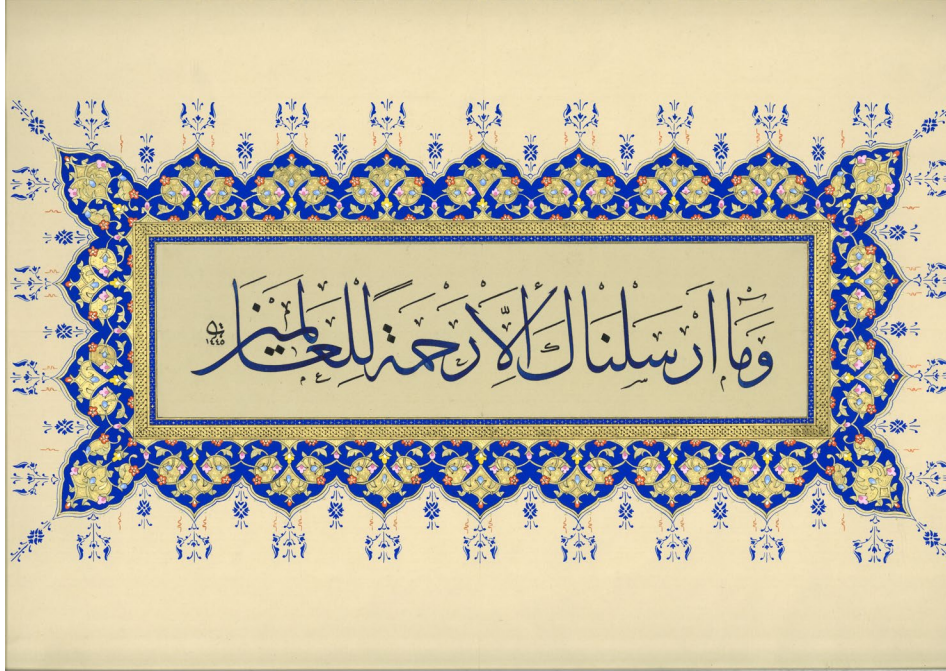 وَمَا أَرْسَلْنَاكَ إِلَّا رَحْمَةً لِلْعَالَمِينَ
١٤٤٥